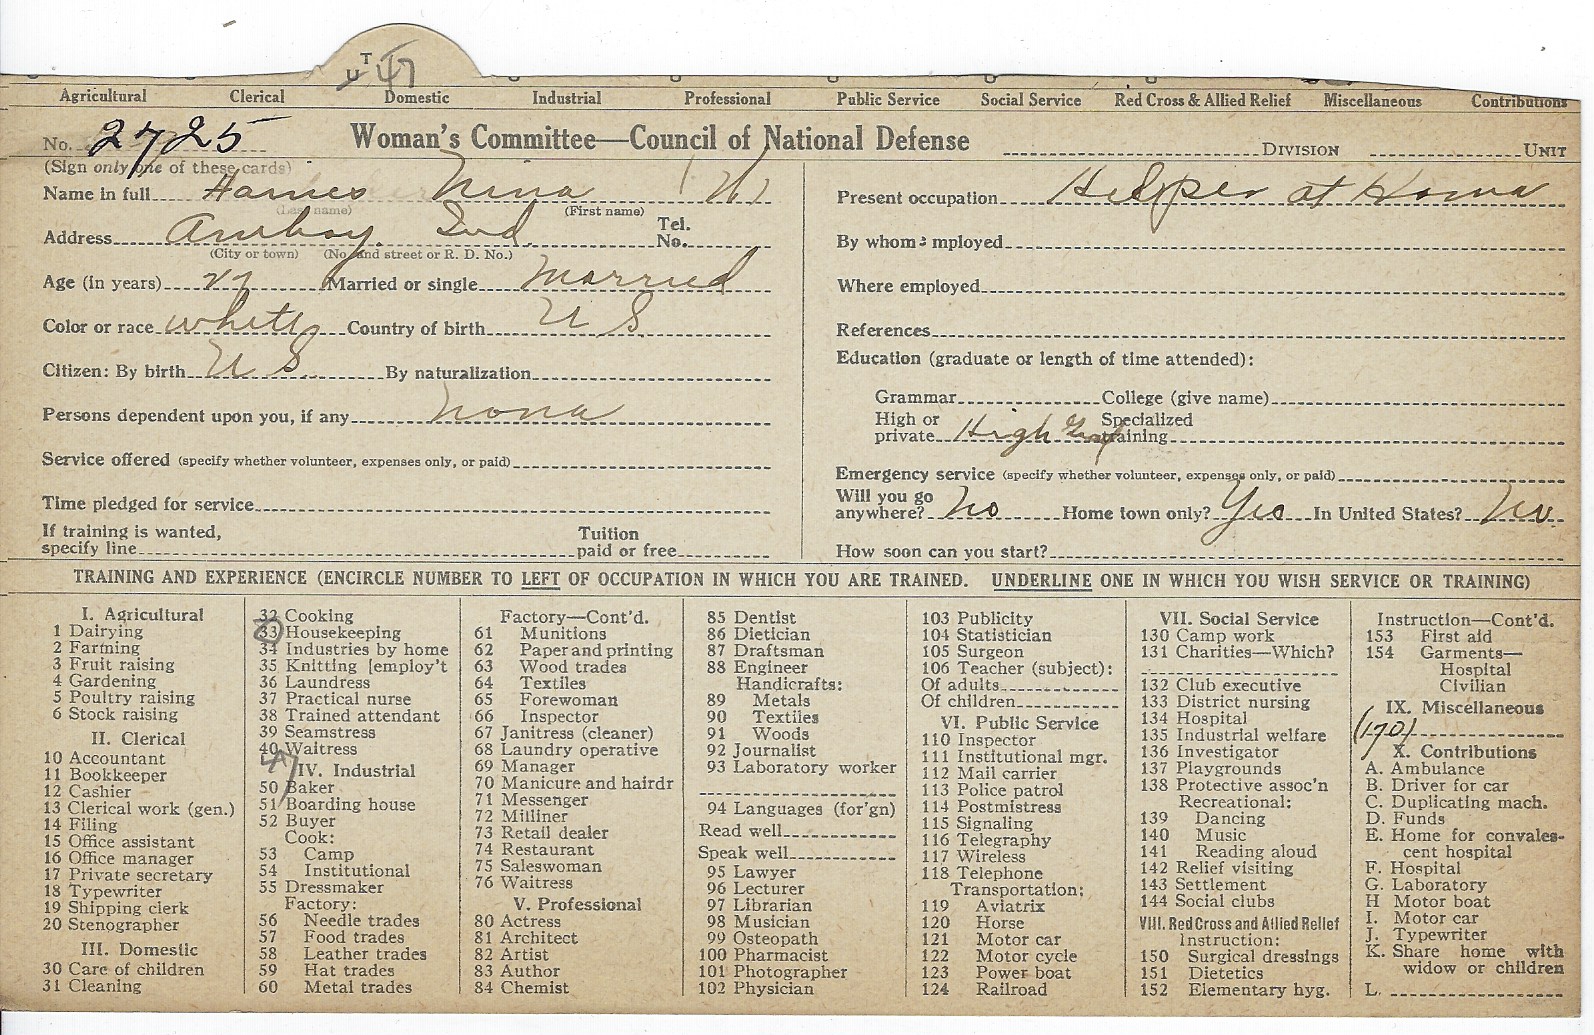 T
U 47
Agricultural Clerical Domestic Industrial Professional Public Service Social Service Red Cross & Allied Relief Miscellaneous Contributions
No. 2725 Woman's Committee—Council of National Defense DIVISION UNIT
(Sign only one of these cards)
Name in full Nina
(Last name) (First name)
Address Amboy. Ind. Tel. No.
(City or town) (No. and street or R. D. No.)
Age (in years) 27 Married or single Married
Color or race white Country of birth U S
Citizen: By birth U S By naturalization
Persons dependent upon you, if any nona
Service offered (specify whether volunteer, expenses only, or paid)
Time pledged for service
If training is wanted, specify line Tuition paid or free
Present occupation Helper at Homa
By whom employed
Where employed
References
Education (graduate or length of time attended):
Grammar College (give name)
High or private High Grad Specialized training
Emergency service (specify whether volunteer, expenses only, or paid)
Will you go anywhere? No Home town only? Yes In United States? No
How soon can you start?
TRAINING AND EXPERIENCE (ENCIRCLE NUMBER TO LEFT OF OCCUPATION IN WHICH YOU ARE TRAINED. UNDERLINE ONE IN WHICH YOU WISH SERVICE OR TRAINING)
I. Agricultural
1 Dairying
2 Farming
3 Fruit raising
4 Gardening
5 Poultry raising
6 Stock raising
II. Clerical
10 Accountant
11 Bookkeeper
12 Cashier
13 Clerical work (gen.)
14 Filing
15 Office assistant
16 Office manager
17 Private secretary
18 Typewriter
19 Shipping clerk
20 Stenographer
III. Domestic
30 Care of children
31 Cleaning
32 Cooking
33 Housekeeping
34 Industries by home
35 Knitting [employ't
36 Laundress
37 Practical nurse
38 Trained attendant
39 Seamstress
40 Waitress
47
IV. Industrial
50 Baker
51 Boarding house
52 Buyer
Cook:
53 Camp
54 Institutional
55 Dressmaker
Factory:
56 Needle trades
57 Food trades
58 Leather trades
59 Hat trades
60 Metal trades
Factory—Cont'd.
61 Munitions
62 Paper and printing
63 Wood trades
64 Textiles
65 Forewoman
66 Inspector
67 Janitress (cleaner)
68 Laundry operative
69 Manager
70 Manicure and hairdr
71 Messenger
72 Milliner
73 Retail dealer
74 Restaurant
75 Saleswoman
76 Waitress
V. Professional
80 Actress
81 Architect
82 Artist
83 Author
84 Chemist
85 Dentist
86 Dietician
87 Draftsman
88 Engineer
Handicrafts:
89 Metals
90 Textiles
91 Woods
92 Journalist
93 Laboratory worker
94 Languages (for'gn)
Read well
Speak well
95 Lawyer
96 Lecturer
97 Librarian
98 Musician
99 Osteopath
100 Pharmacist
101 Photographer
102 Physician
103 Publicity
104 Statistician
105 Surgeon
106 Teacher (subject):
Of adults
Of children
VI. Public Service
110 Inspector
111 Institutional mgr.
112 Mail carrier
113 Police patrol
114 Postmistress
115 Signaling
116 Telegraphy
117 Wireless
118 Telephone
Transportation:
119 Aviatrix
120 Horse
121 Motor car
122 Motor cycle
123 Power boat
124 Railroad
VII. Social Service
130 Camp work
131 Charities—Which?
132 Club executive
133 District nursing
134 Hospital
135 Industrial welfare
136 Investigator
137 Playgrounds
138 Protective assoc'n
Recreational:
139 Dancing
140 Music
141 Reading aloud
142 Relief visiting
143 Settlement
144 Social clubs
VIII. Red Cross and Allied Relief
Instruction:
150 Surgical dressings
151 Dietetics
152 Elementary hyg.
Instruction—Cont'd.
153 First aid
154 Garments—
Hospital
Civilian
IX. Miscellaneous
(170)
X. Contributions
A. Ambulance
B. Driver for car
C. Duplicating mach.
D. Funds
E. Home for convales-
cent hospital
F. Hospital
G. Laboratory
H Motor boat
I. Motor car
J. Typewriter
K. Share home with
widow or children
L.